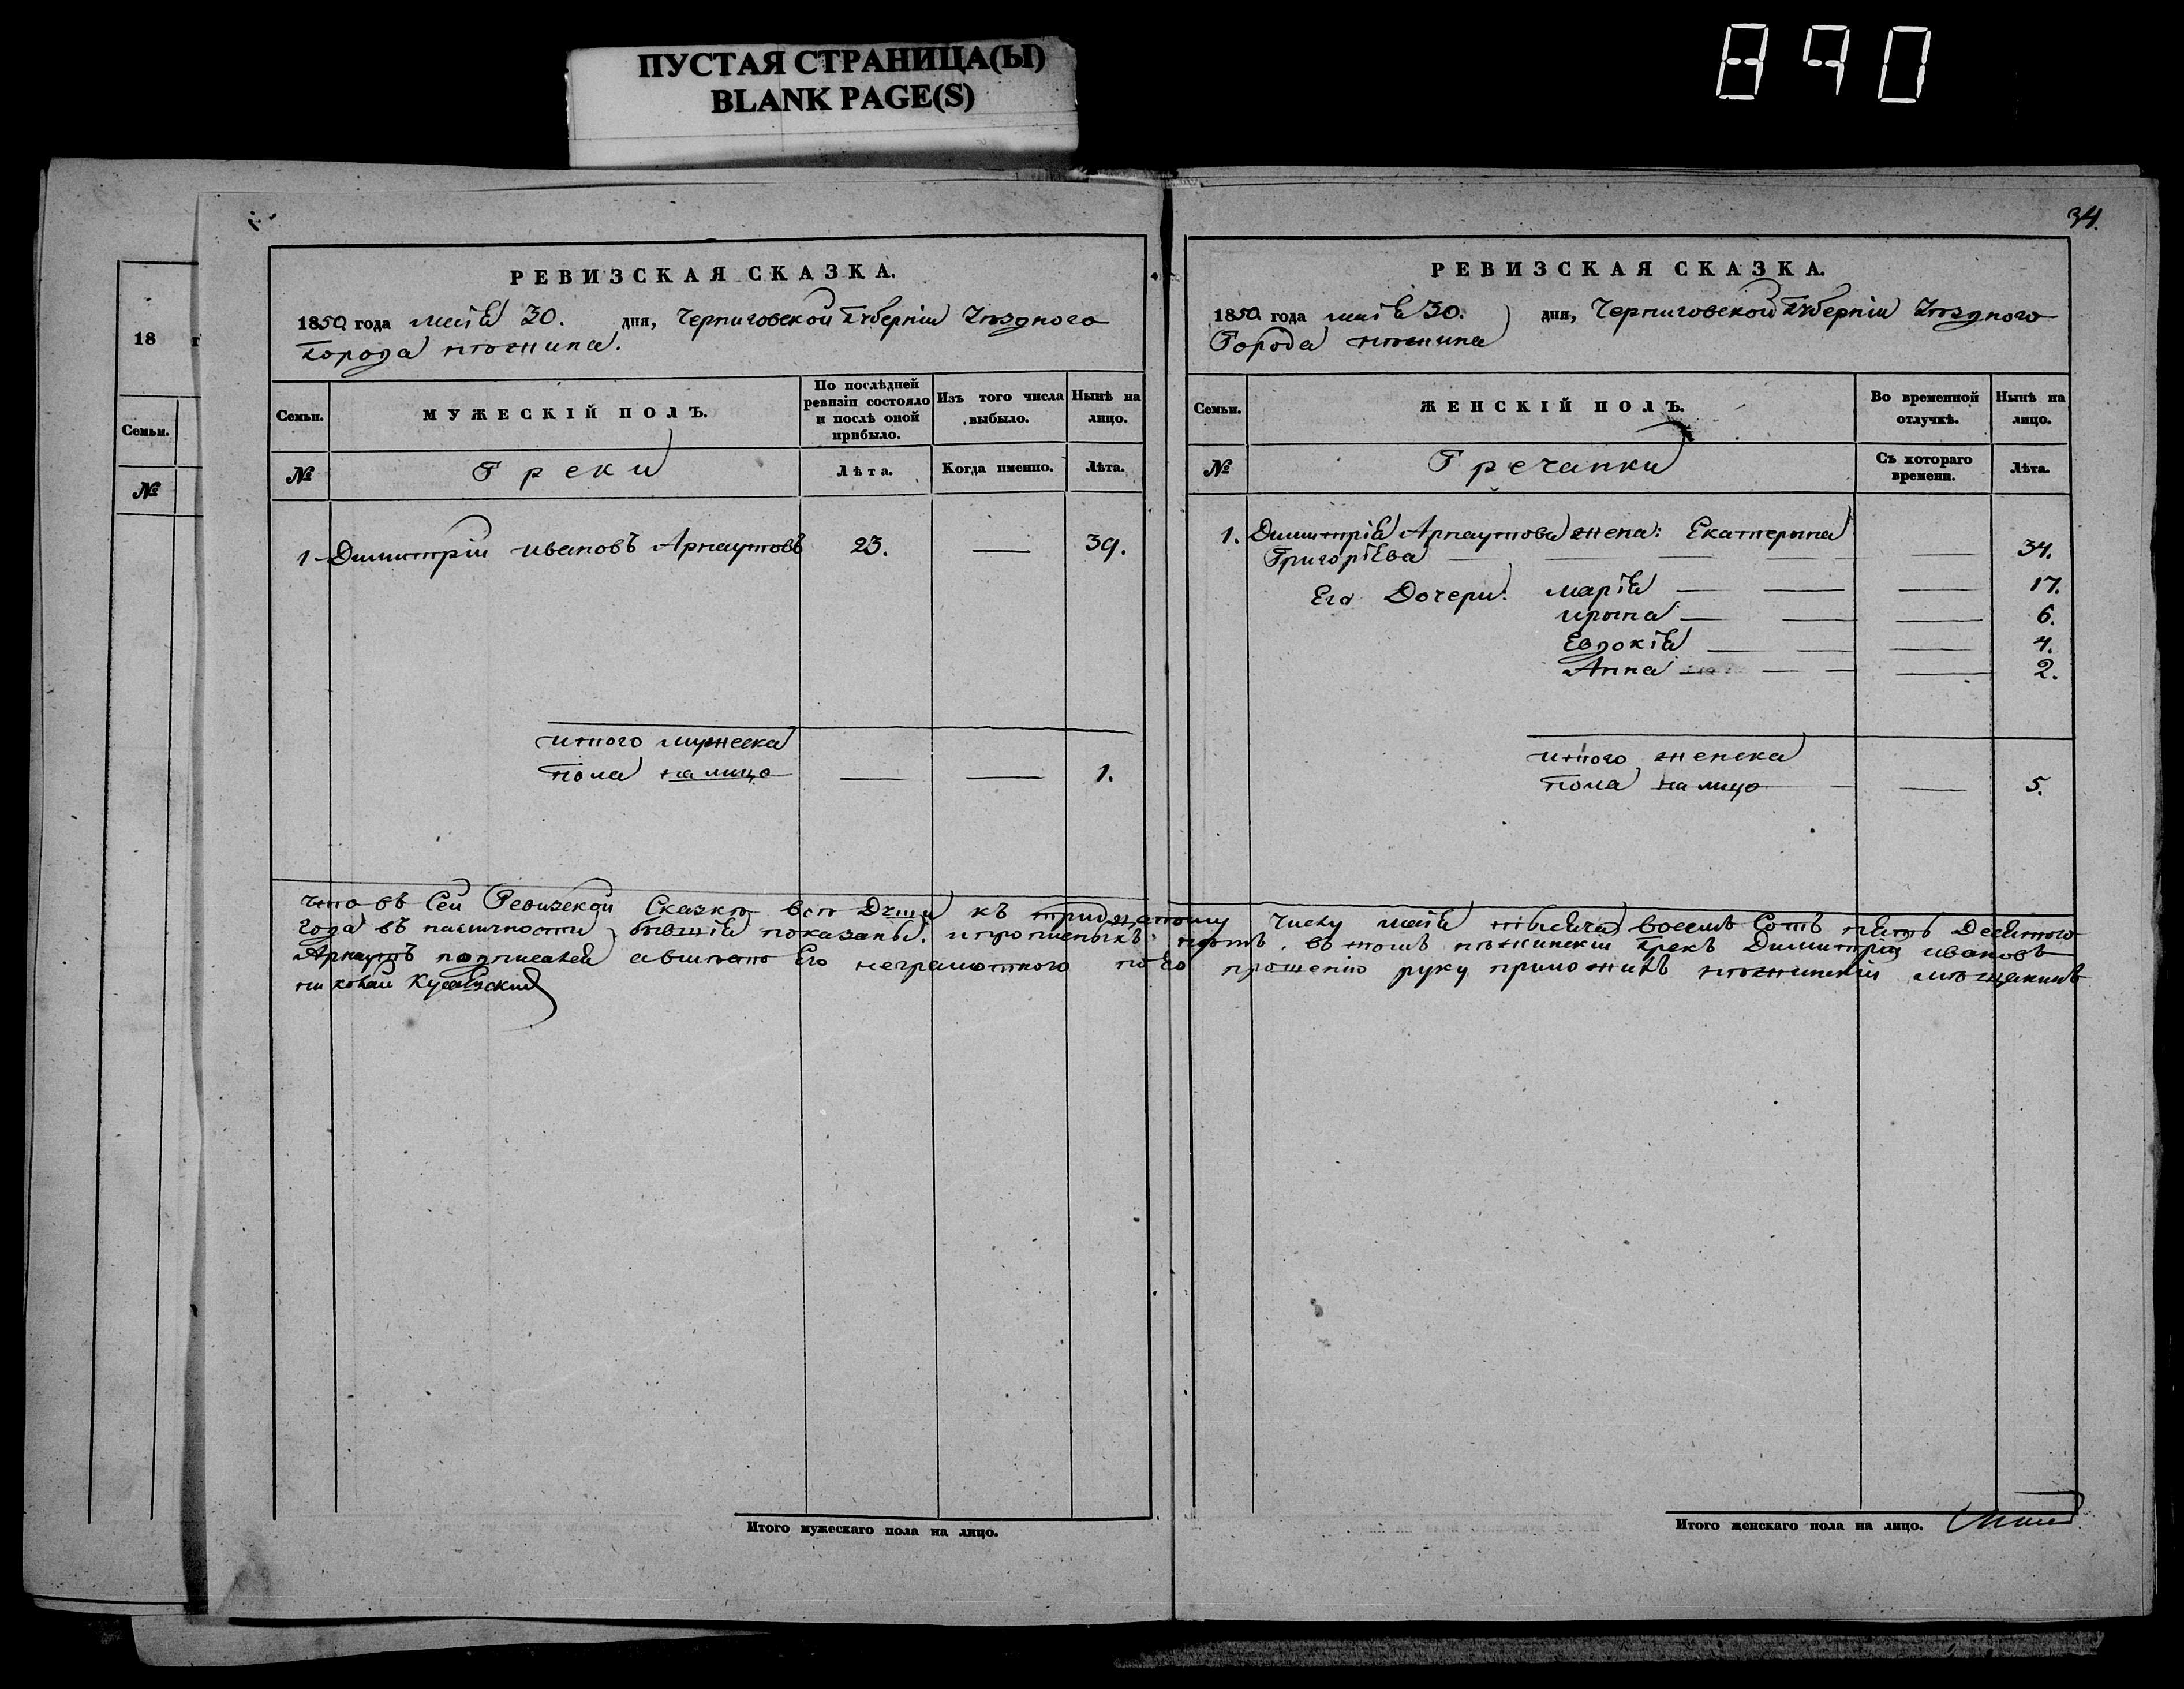 ПУСТАЯ СТРАНИЦА(Ы)
BLANK PAGE(S)
890
34.
18 г
Семьи.
№
РЕВИЗСКАЯ СКАЗКА.
1850 года маія 30. дня, Черниговской Губерніи Уѣзднаго
города нѣжина.
Семьи.
МУЖЕСКІЙ ПОЛЪ.
По послѣдней ревизіи состояло и послѣ оной прибыло.
Изъ того числа выбыло.
Нынѣ на лицо.
№
Греки
Лѣта.
Когда именно.
Лѣта.
1 Димитрій ивановъ Арнаутовъ 23. — 39.
итого мужеска
пола на лицо — — 1.
РЕВИЗСКАЯ СКАЗКА.
1850 года маія 30. дня, Черниговской Губерніи Уѣзднаго
Города нѣжина
Семьи.
ЖЕНСКІЙ ПОЛЪ.
Во временной отлучкѣ.
Нынѣ на лицо.
№
Гречанки
Съ котораго времени.
Лѣта.
1. Димитрія Арнаутова жена: Екатерына
Григоріева — — 34.
Его Дочери: марія — — — 17.
ирына — — — 6.
Евдокія — — — 4.
Анна — — — 2.
итого женска
пола на лицо — — 5.
что въ Сей Ревизской Сказкѣ всѣ Души къ тридцатому Числу маія тысяча восемъ Сотъ пять Десятого
года въ наличности бывшія показаны. и прописныхъ нѣтъ. въ томъ нѣжинскій грекъ Димитрій ивановъ
Арнаутъ подписался а вмѣсто Его неграмотного по Его прошенію руку приложилъ нѣжинскій мѣщанинъ
николай
Итого мужескаго пола на лицо.
Итого женскаго пола на лицо.